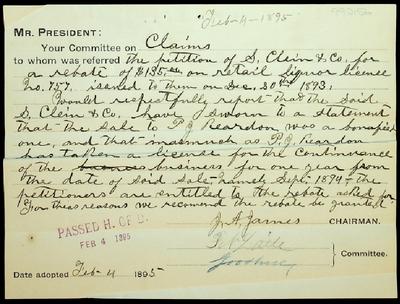 Feb-4-1895
MR. PRESIDENT:
Your Committee on Claims
to whom was referred the petition of S. Clein & Co. for
a rebate of $135.00 on retail liquor license
No. 757. issued to them on Dec. 20th 1893.
Would respectfully report that the said
S. Clein & Co. have sworn to a statement
that the sale to P. J. Reardon was a bonafied
one, and that inasmuch as P. J. Reardon
has taken a license for the continuance
of the business business for one year from
the date of said sale namely Sept. 1894 - the
petitioners are entitled to the rebate asked for
For theas reasons we recomend the rebate be granted
J. A. James CHAIRMAN.
PASSED H. OF D.
FEB 4 1895
Committee.
Date adopted Feb 4 1895